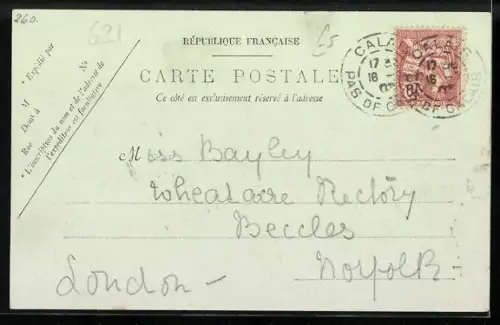 260.
621
65
RÉPUBLIQUE FRANÇAISE
CARTE POSTALE
Ce côté est exclusivement réservé à l'adresse
* Expédié par
M
Nº
Demt à
Rue
* L'inscription du nom et de l'adresse de
l'expéditeur est facultative
CALAIS
17
16
PAS DE CALAIS
CALAIS
17
16
PAS DE CALAIS
Miss Bayley
Wheatacre Rectory
Beccles
Norfolk -
London -